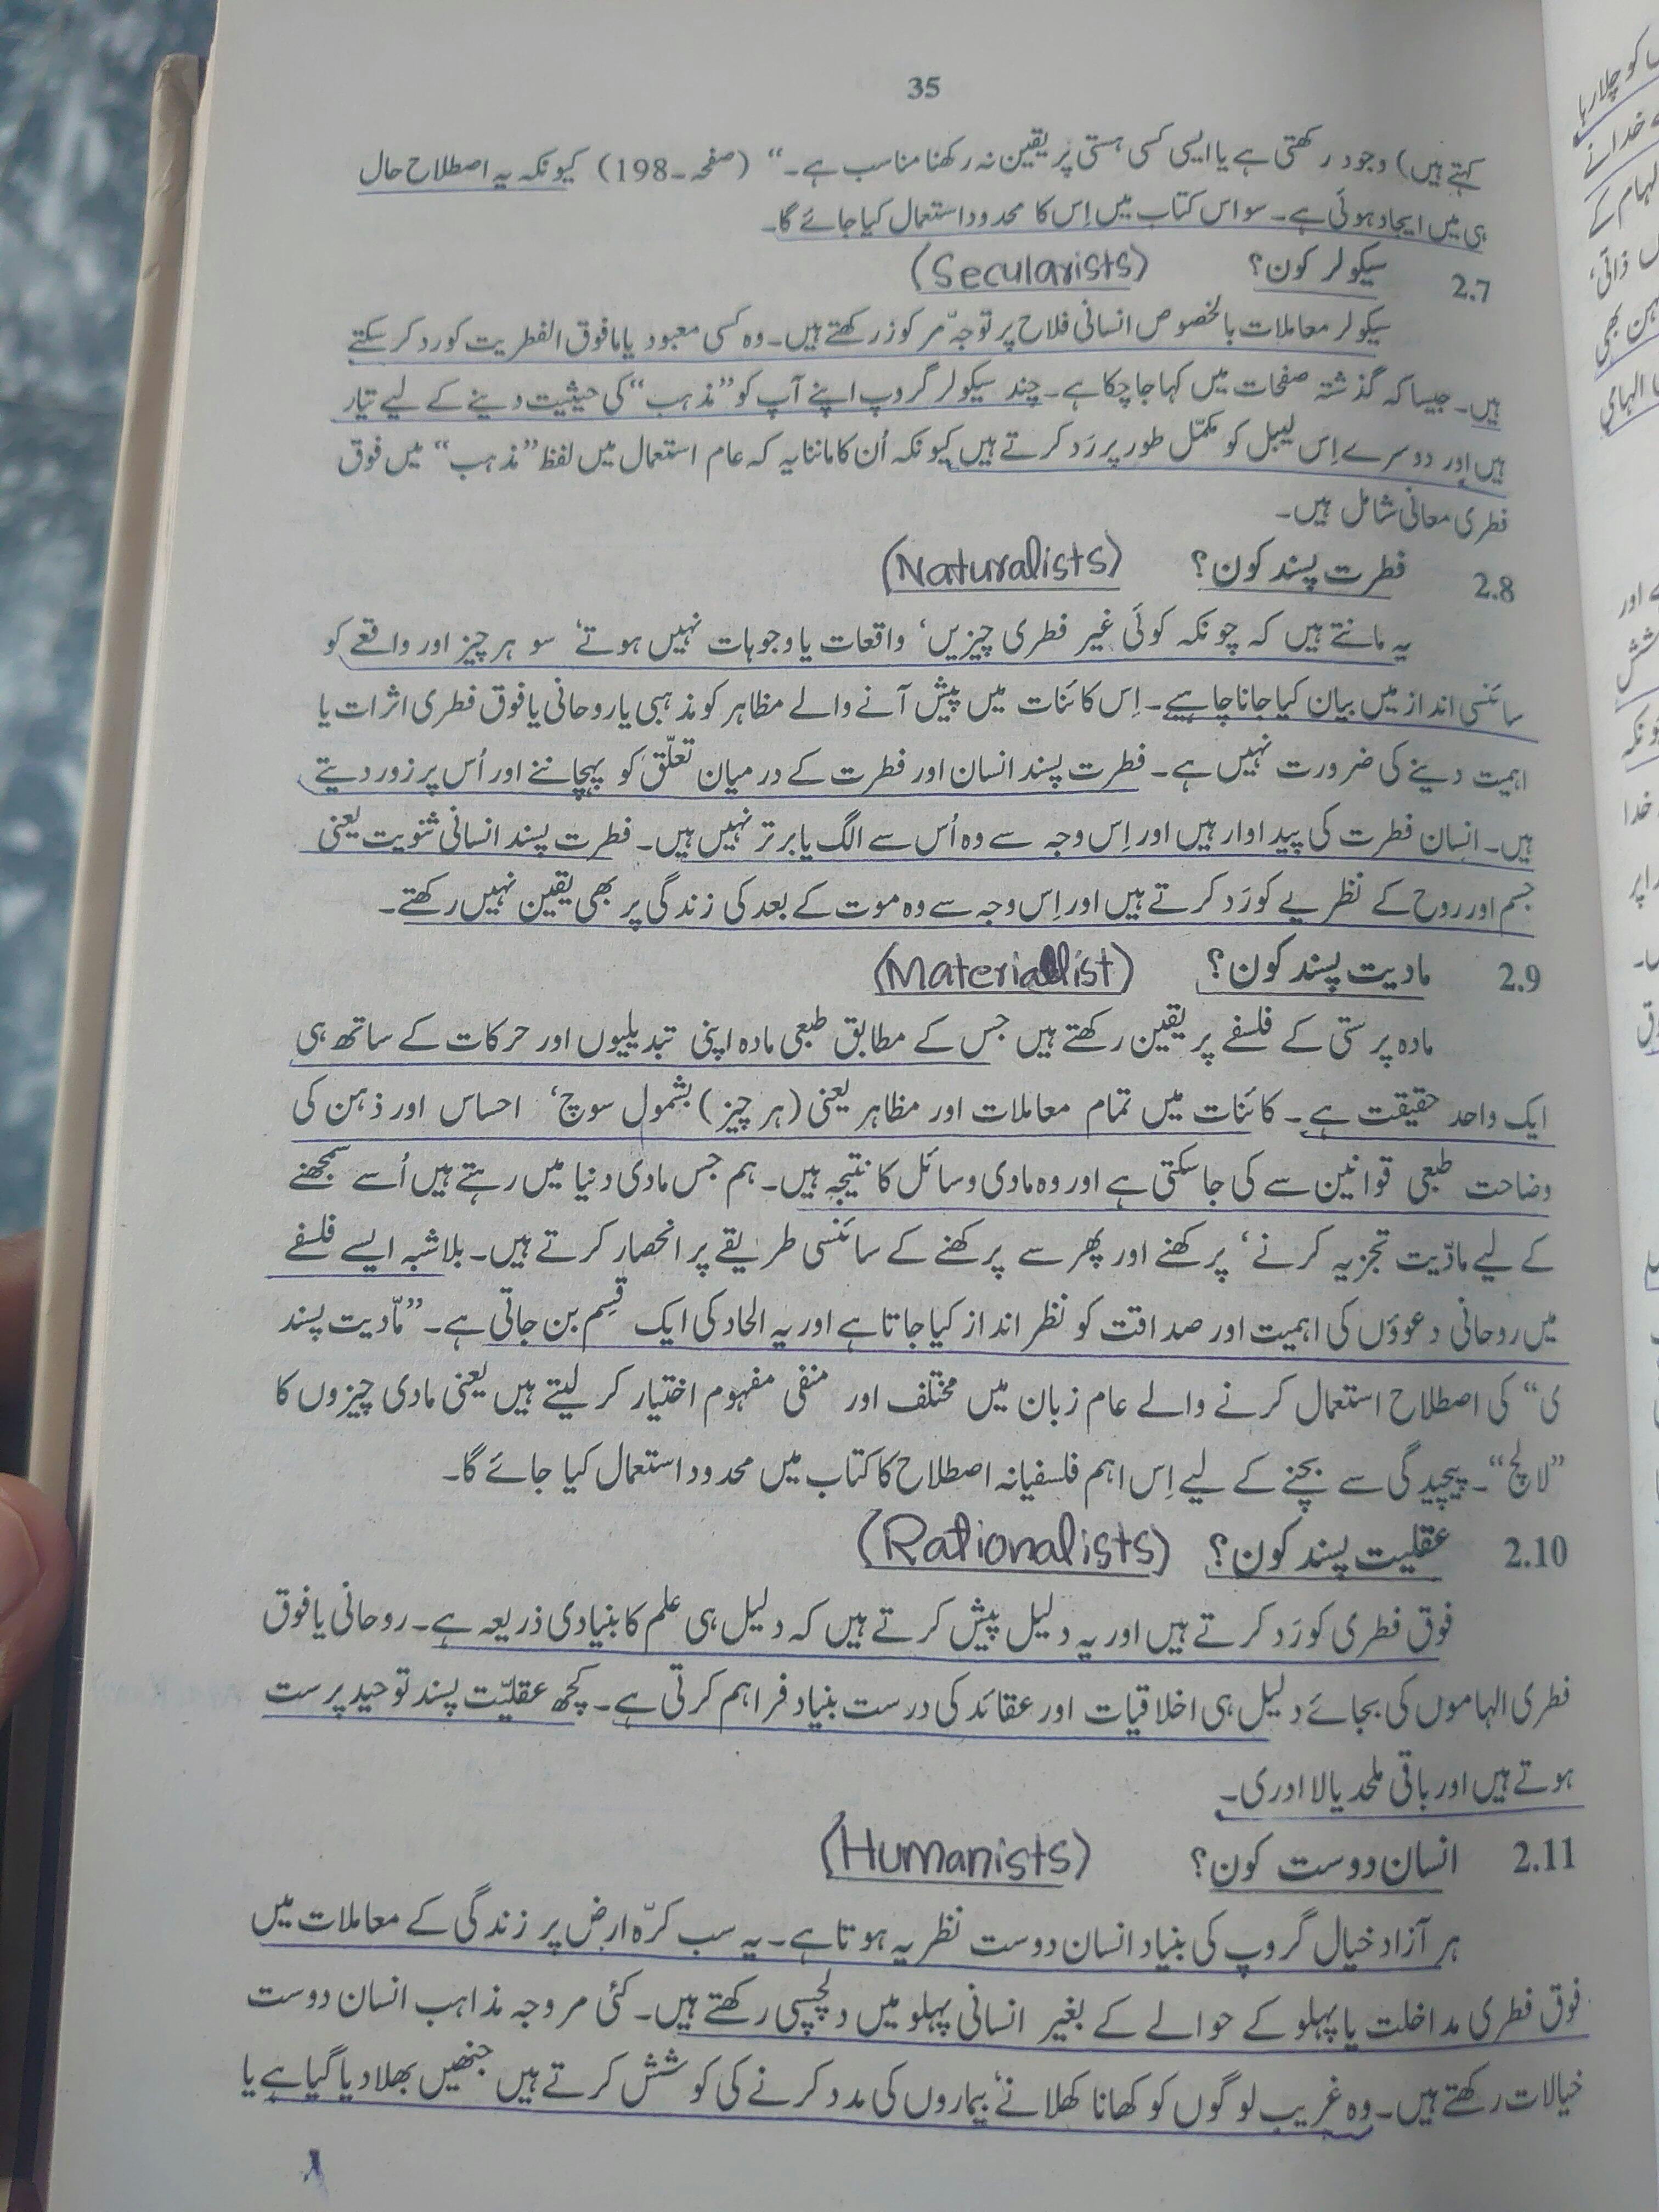 35
کہتے ہیں) وجود رکھتی ہے یا ایسی کسی ہستی پر یقین نہ رکھنا مناسب ہے۔“ (صفحہ۔198) کیونکہ یہ اصطلاح حال
ہی میں ایجاد ہوئی ہے۔ سو اس کتاب میں اِس کا محدود استعمال کیا جائے گا۔
2.7 سیکولر کون؟ (Secularists)
سیکولر معاملات بالخصوص انسانی فلاح پر توجّہ مرکوز رکھتے ہیں۔ وہ کسی معبود یا مافوق الفطریت کو رد کر سکتے
ہیں۔ جیسا کہ گذشتہ صفحات میں کہا جا چکا ہے۔ چند سیکولر گروپ اپنے آپ کو ”مذہب“ کی حیثیت دینے کے لیے تیار
ہیں اور دوسرے اِس لیبل کو مکمّل طور پر رَد کرتے ہیں کیونکہ اُن کا ماننا یہ کہ عام استعمال میں لفظ ”مذہب“ میں فوق
فطری معانی شامل ہیں۔
2.8 فطرت پسند کون؟ (Naturalists)
یہ مانتے ہیں کہ چونکہ کوئی غیر فطری چیزیں، واقعات یا وجوہات نہیں ہوتے، سو ہر چیز اور واقعے کو
سائنسی انداز میں بیان کیا جانا چاہیے۔ اِس کائنات میں پیش آنے والے مظاہر کو مذہبی یا روحانی یا فوق فطری اثرات یا
اہمیت دینے کی ضرورت نہیں ہے۔ فطرت پسند انسان اور فطرت کے درمیان تعلّق کو پہچاننے اور اُس پر زور دیتے
ہیں۔ انسان فطرت کی پیداوار ہیں اور اِس وجہ سے وہ اُس سے الگ یا برتر نہیں ہیں۔ فطرت پسند انسانی ثنویت یعنی
جسم اور روح کے نظریے کو رَد کرتے ہیں اور اِس وجہ سے وہ موت کے بعد کی زندگی پر بھی یقین نہیں رکھتے۔
2.9 مادیت پسند کون؟ (Materiallist)
مادہ پرستی کے فلسفے پر یقین رکھتے ہیں جس کے مطابق طبعی مادہ اپنی تبدیلیوں اور حرکات کے ساتھ ہی
ایک واحد حقیقت ہے۔ کائنات میں تمام معاملات اور مظاہر یعنی (ہر چیز) بشمول سوچ، احساس اور ذہن کی
وضاحت طبعی قوانین سے کی جا سکتی ہے اور وہ مادی وسائل کا نتیجہ ہیں۔ ہم جس مادی دنیا میں رہتے ہیں اُسے سمجھنے
کے لیے مادّیت تجزیہ کرنے، پرکھنے اور پھر سے پرکھنے کے سائنسی طریقے پر انحصار کرتے ہیں۔ بلاشبہ ایسے فلسفے
میں روحانی دعوؤں کی اہمیت اور صداقت کو نظر انداز کیا جاتا ہے اور یہ الحاد کی ایک قِسم بن جاتی ہے۔ ”مادّیت پسند
ی“ کی اصطلاح استعمال کرنے والے عام زبان میں مختلف اور منفی مفہوم اختیار کر لیتے ہیں یعنی مادی چیزوں کا
”لالچ“۔ پیچیدگی سے بچنے کے لیے اِس اہم فلسفیانہ اصطلاح کا کتاب میں محدود استعمال کیا جائے گا۔
2.10 عقلیت پسند کون؟ (Rationalists)
فوق فطری کو رَد کرتے ہیں اور یہ دلیل پیش کرتے ہیں کہ دلیل ہی علم کا بنیادی ذریعہ ہے۔ روحانی یا فوق
فطری الہاموں کی بجائے دلیل ہی اخلاقیات اور عقائد کی درست بنیاد فراہم کرتی ہے۔ کچھ عقلیّت پسند توحید پرست
ہوتے ہیں اور باقی ملحد یا لا ادری۔
2.11 انسان دوست کون؟ (Humanists)
ہر آزاد خیال گروپ کی بنیاد انسان دوست نظریہ ہوتا ہے۔ یہ سب کرّہ ارض پر زندگی کے معاملات میں
فوق فطری مداخلت یا پہلو کے حوالے کے بغیر انسانی پہلو میں دلچسپی رکھتے ہیں۔ کئی مروجہ مذاہب انسان دوست
خیالات رکھتے ہیں۔ وہ غریب لوگوں کو کھانا کھلانے، بیماروں کی مدد کرنے کی کوشش کرتے ہیں جنھیں بھلا دیا گیا ہے یا